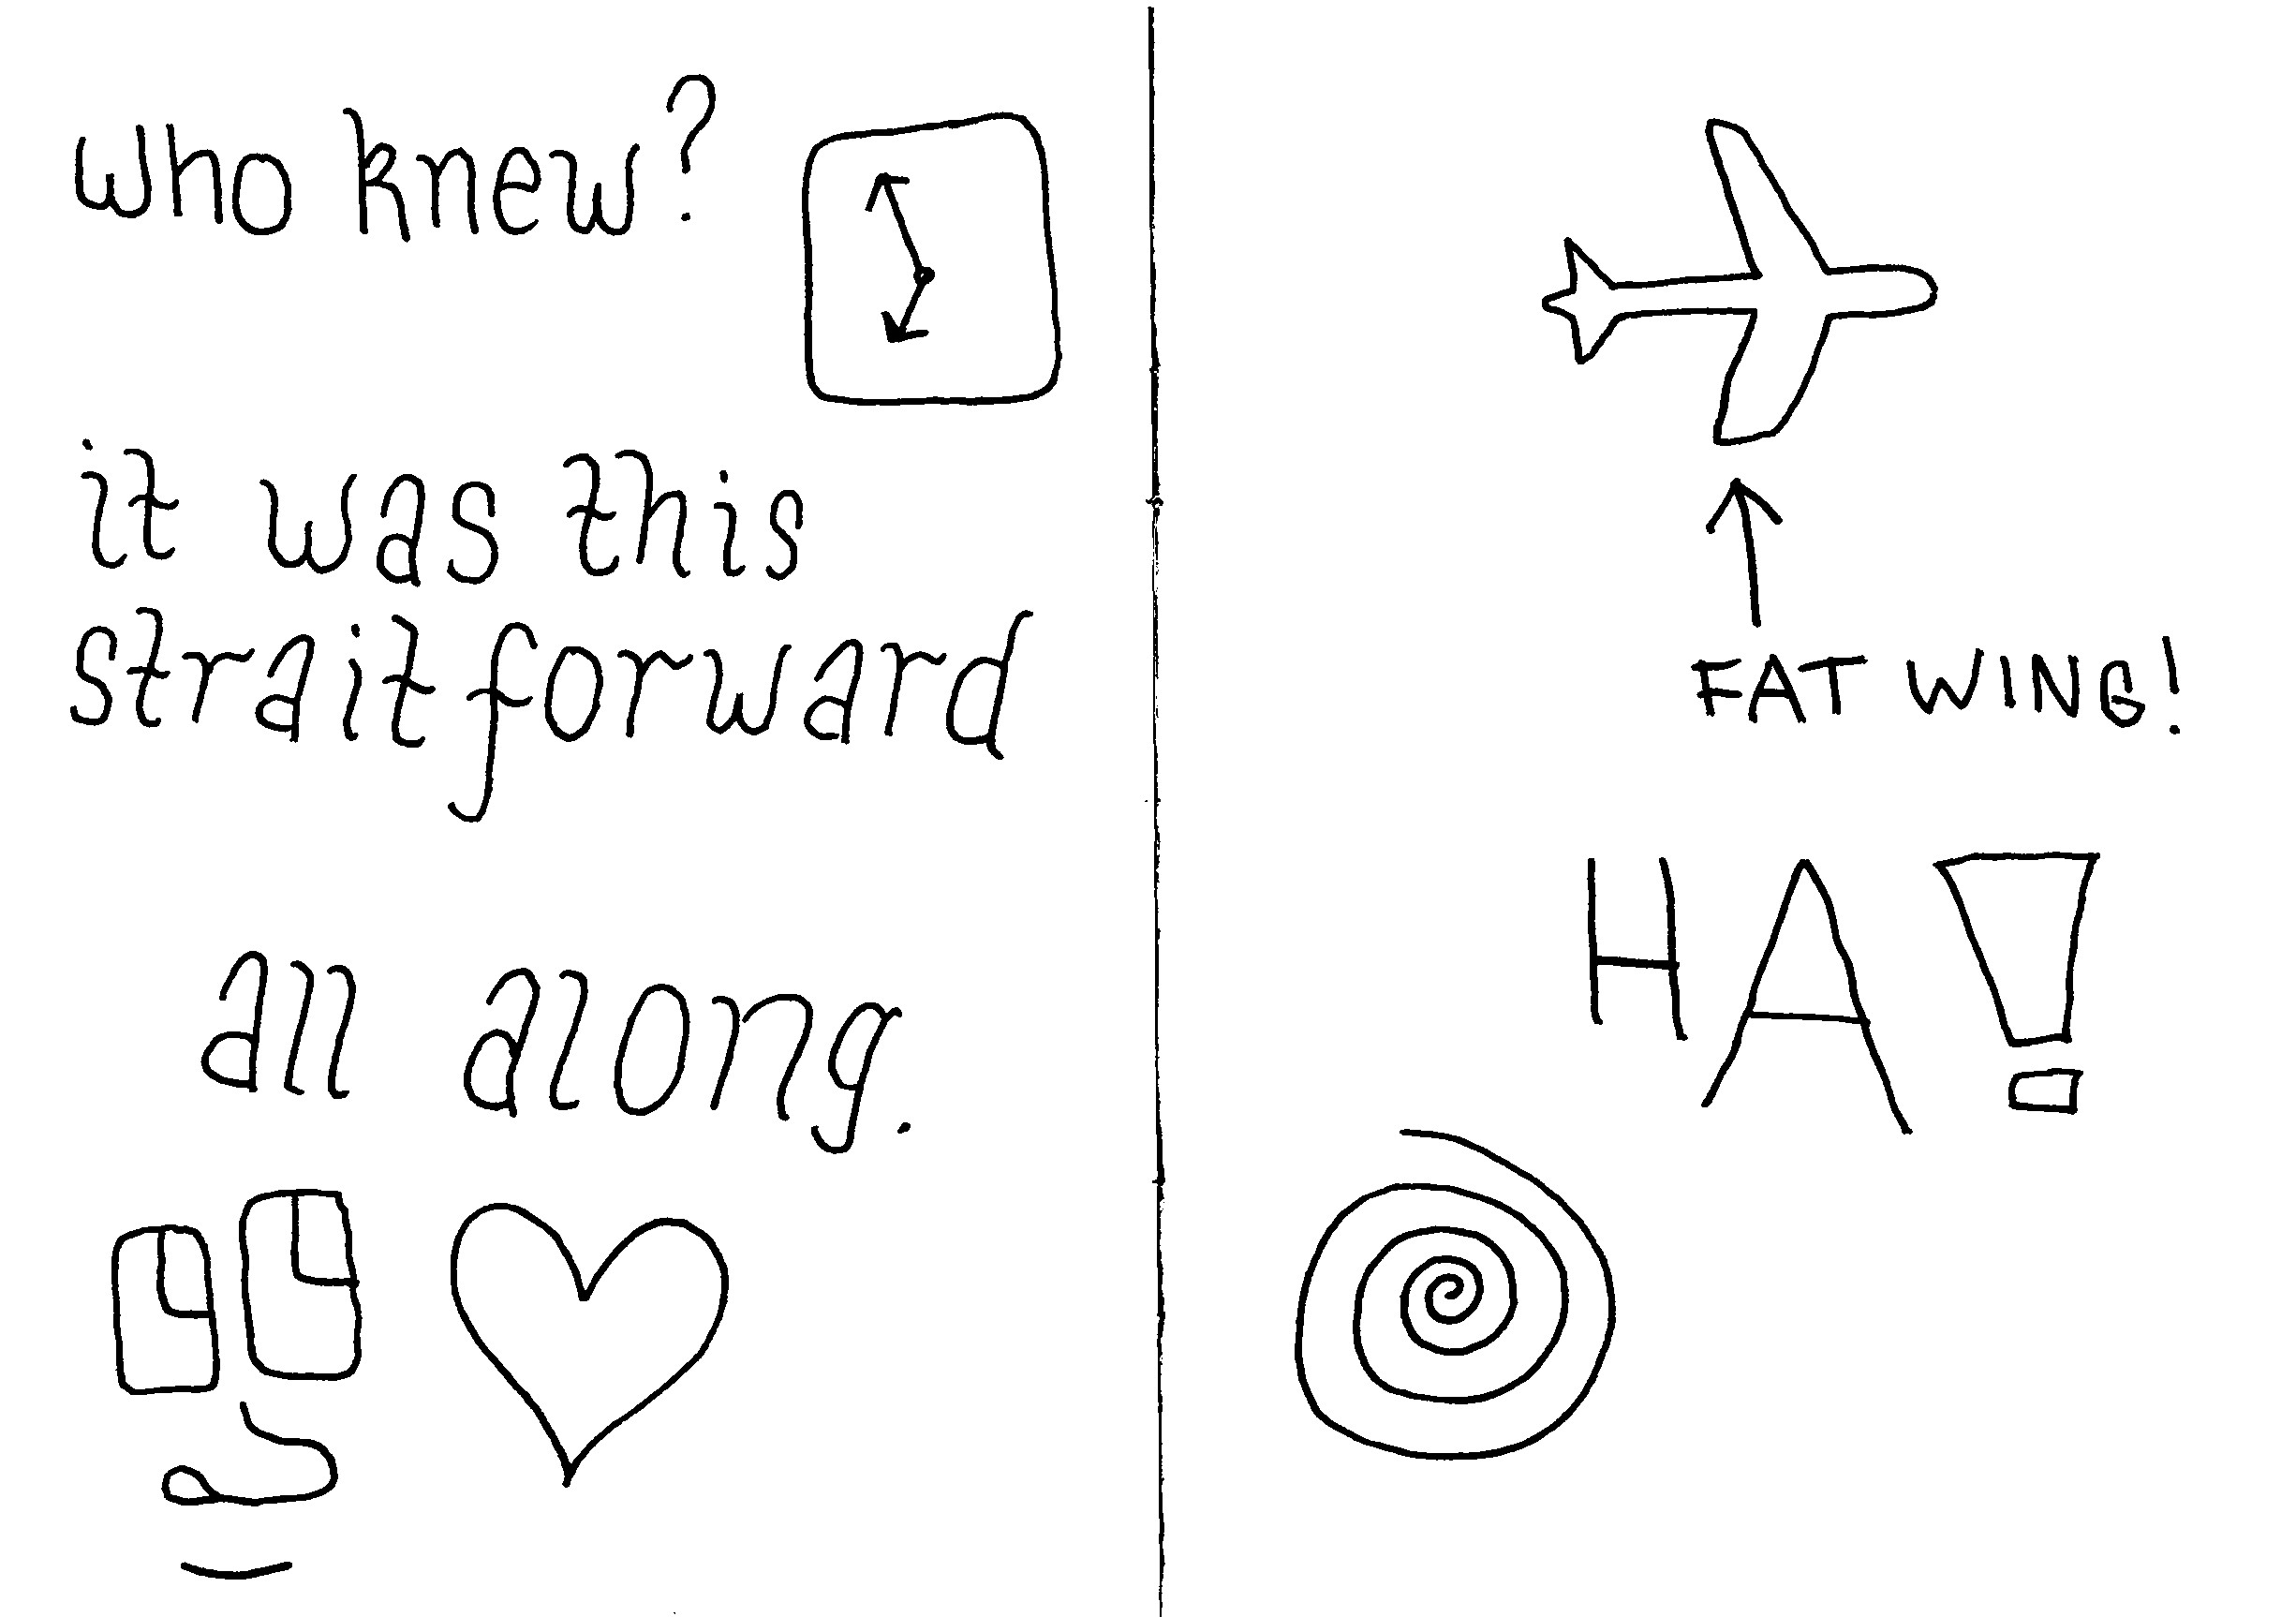 who knew?
it was this
straitforward
all along.
FAT WING!
HA!